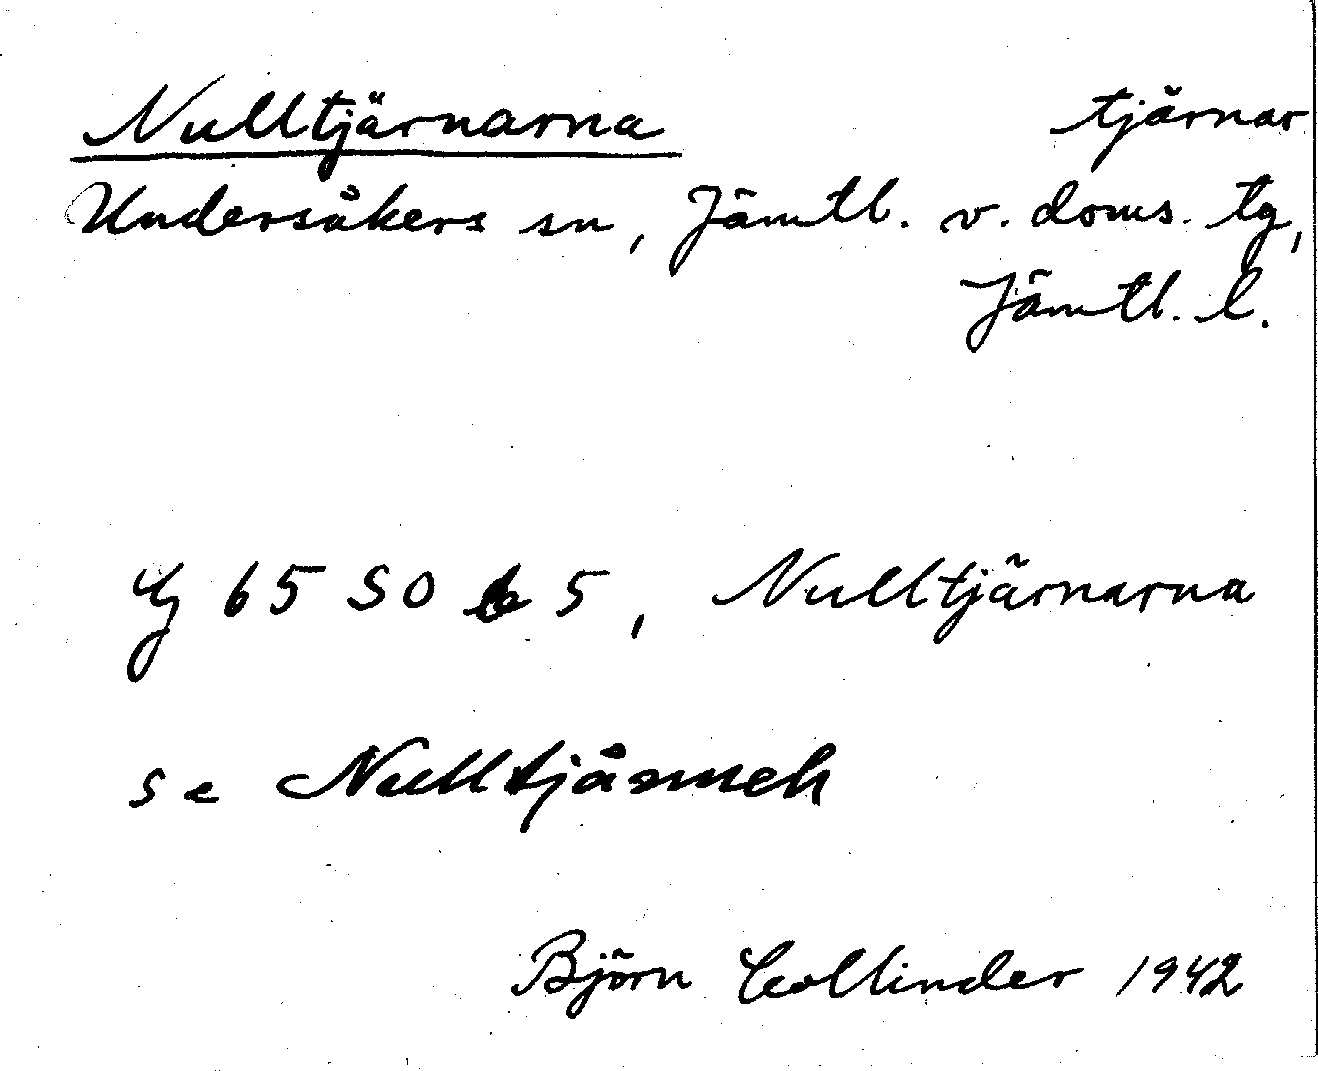 Nulltjärnarna tjärnar
Undersåkers sn, Jämtl. v. doms. tg,
Jämtl. l.
G 65 SO b 5, Nulltjärnarna
se Nulltjånneh
Björn Collinder 1942